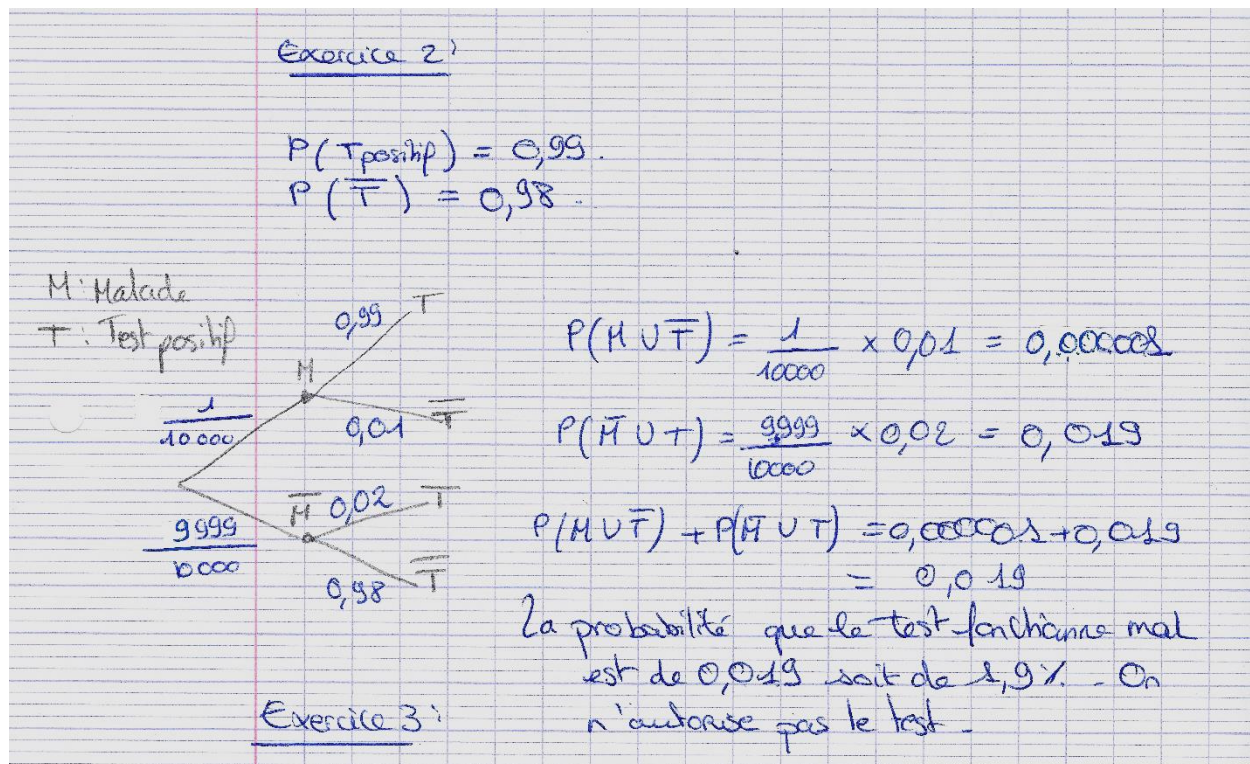 Exercice 2 :
P( Tpositif ) = 0,99 .
P ( T̅ ) = 0,98 .
M : Malade
T : Test positif
0,99 T
M
1/10 000
0,01 T̅
M̅ 0,02 T
9999/10 000
0,98 T̅
P(M ∪ T̅) = 1/10000 × 0,01 = 0,000001
P(M̅ ∪ T) = 9999/10000 × 0,02 = 0,019
P(M ∪ T̅) + P(M̅ ∪ T) = 0,000001 + 0,019
= 0,019
La probabilité que le test fonctionne mal
est de 0,019 soit de 1,9 % . On
n'autorise pas le test .
Exercice 3 :